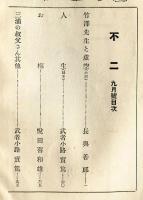 不二 九月號目次
竹澤先生と虚空 長與善郎
人生 武者小路實篤
お 悦田喜和雄
三浦の叔父さん其他 武者小路實篤